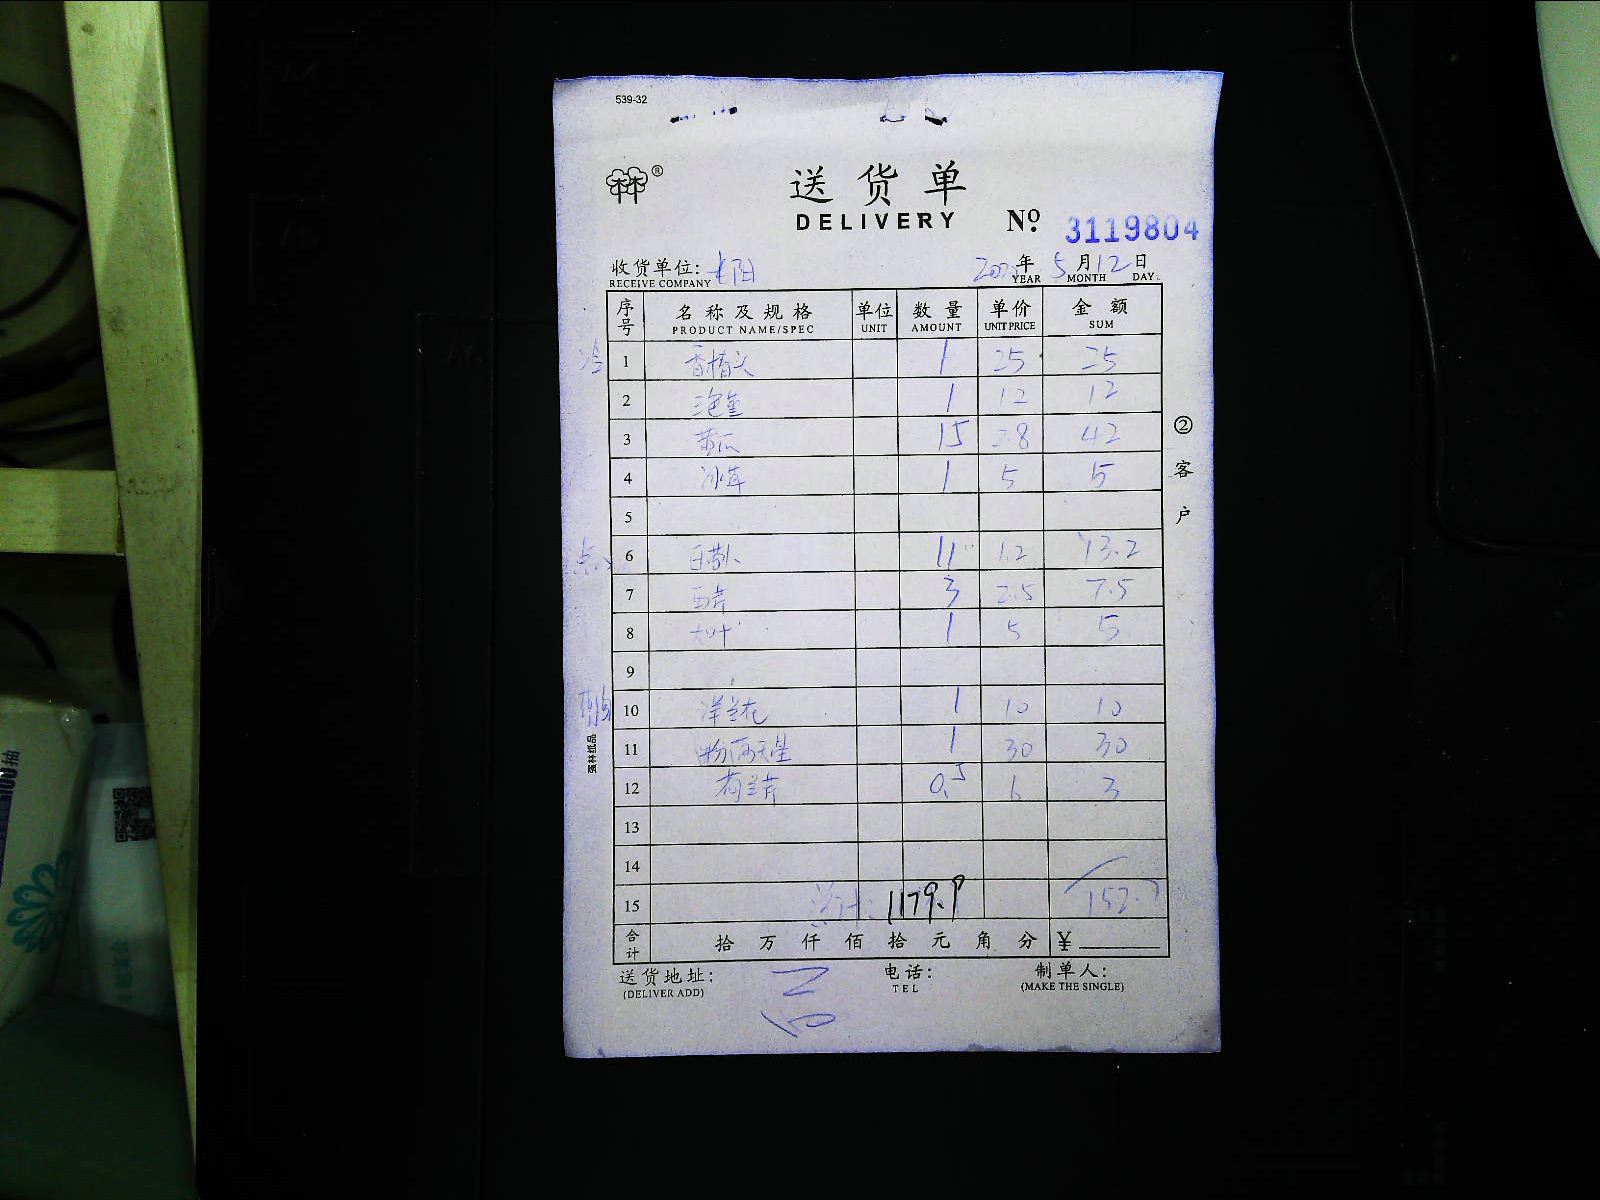 539-32
®
送货单
DELIVERY
№ 3119804
收货单位:
RECEIVE COMPANY
年 5月12日
YEAR MONTH DAY
序号 名称及规格 单位 数量 单价 金额
PRODUCT NAME/SPEC UNIT AMOUNT UNIT PRICE SUM
冷 1 香椿头 1 25 25
2 1 12 12
3 黄瓜 15 2.8 42
4 冰草 1 5 5
5
点心 6 11 1.2 13.2
7 西芹 3 2.5 7.5
8 大叶 1 5 5
9
10 洋兰花 1 10 10
11 1 30 30
12 荷兰芹 0.5 6 3
13
14
15 总计: 1179.9 152.7
合计 拾万仟佰拾元角分 ¥
送货地址: 电话: 制单人:
(DELIVER ADD) TEL (MAKE THE SINGLE)
②客户
强林纸品